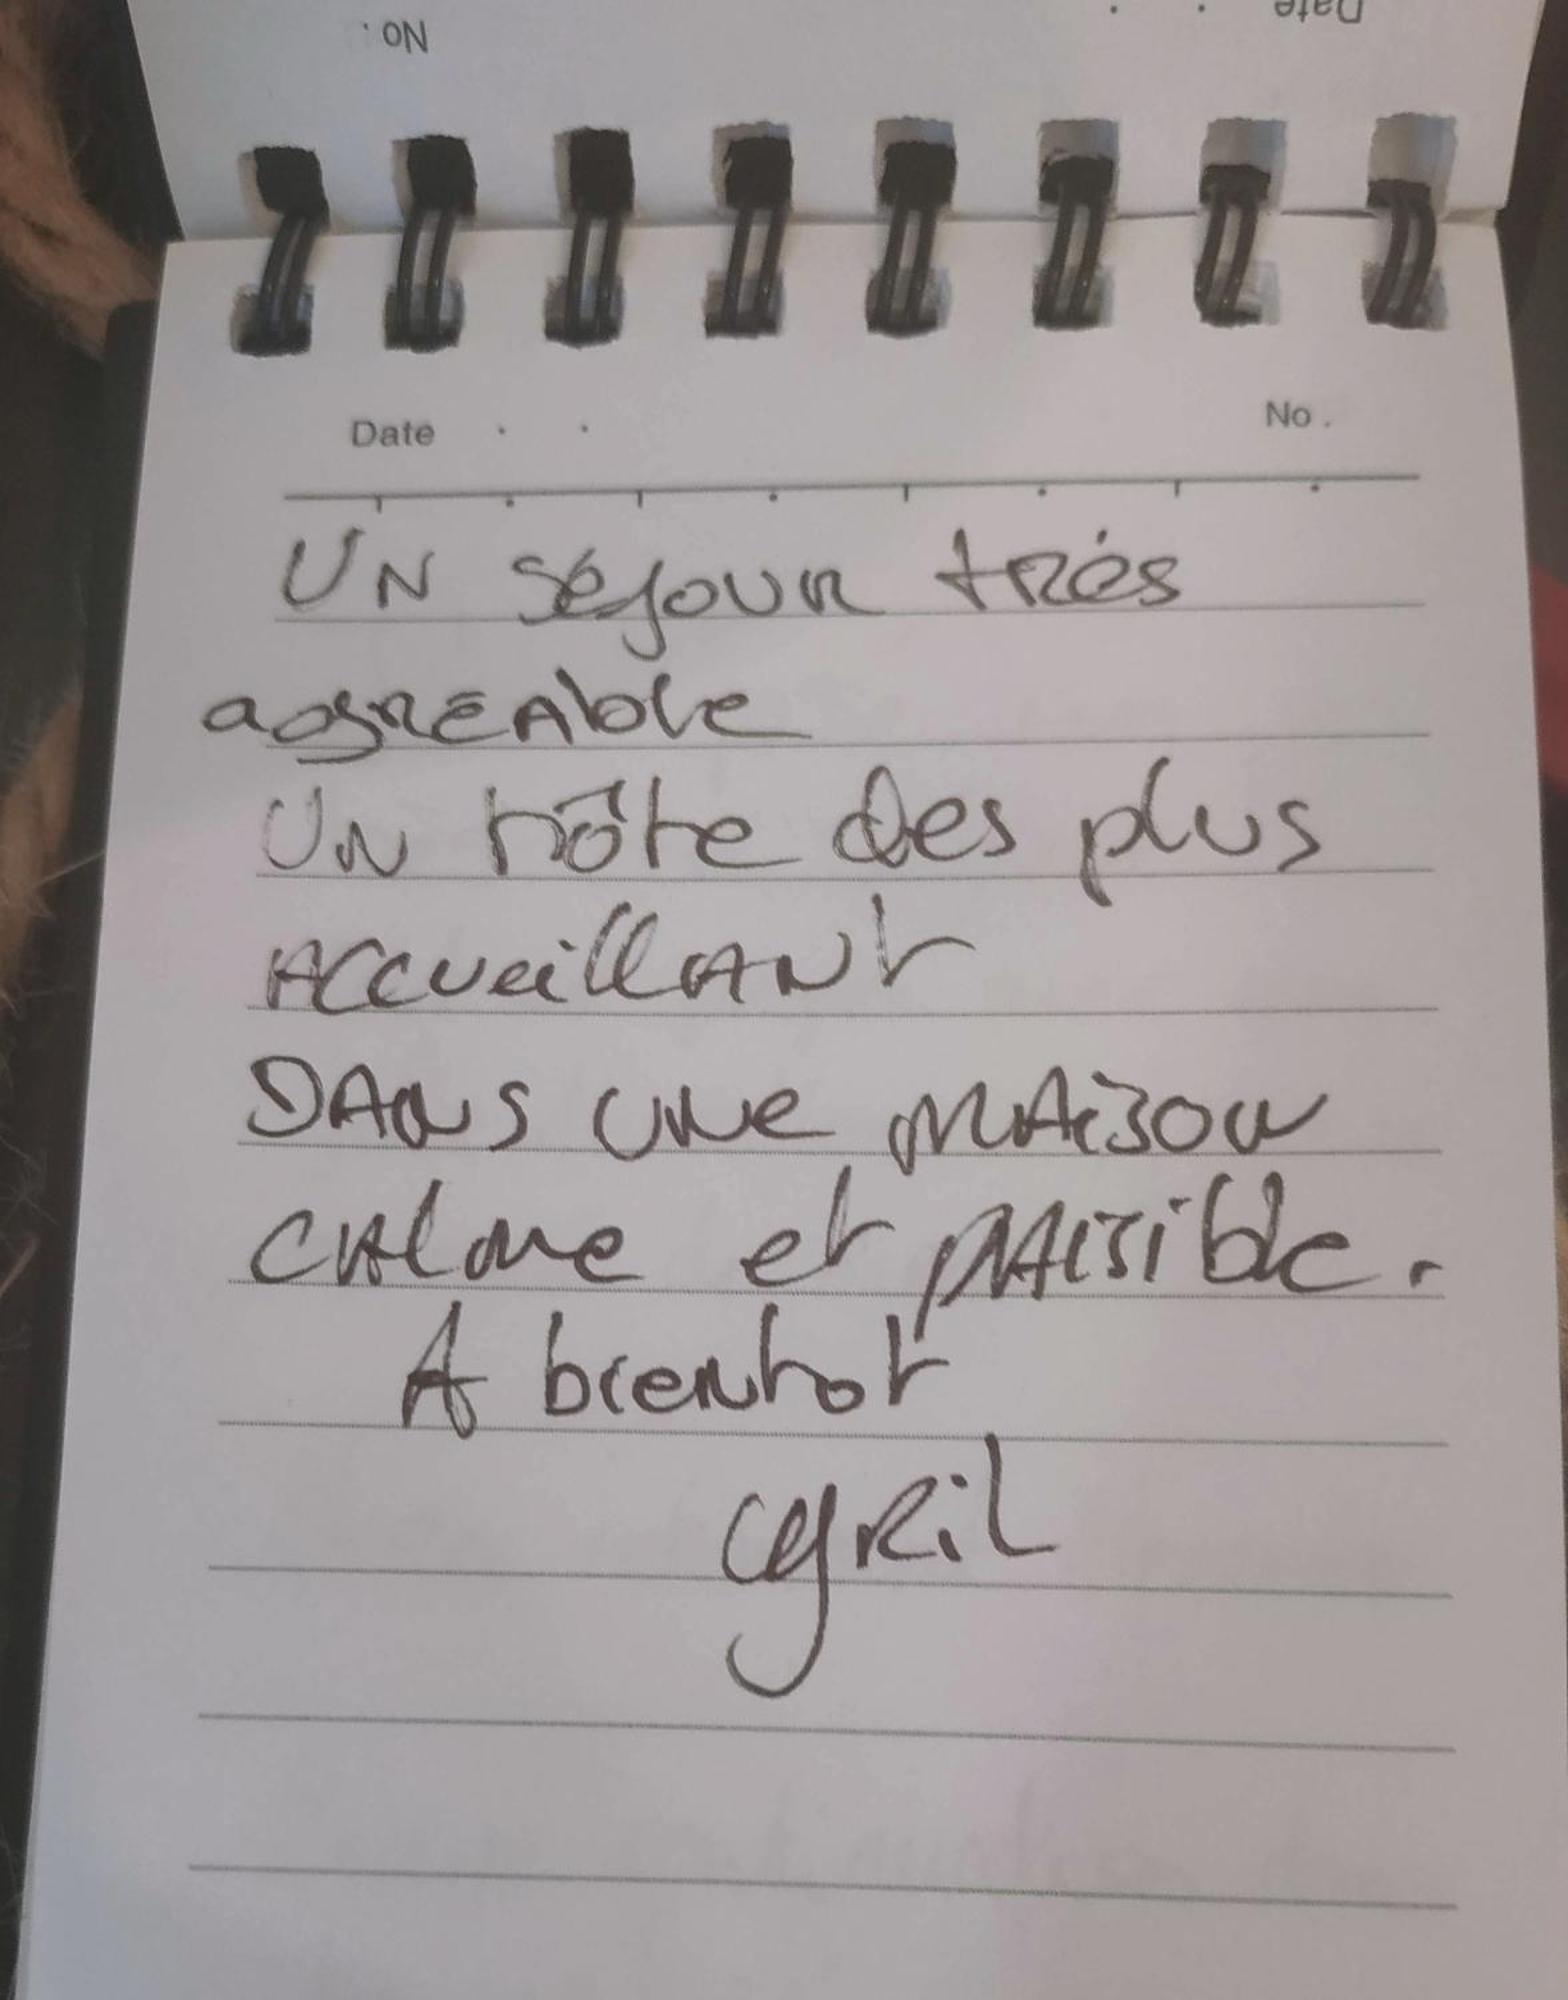 No.
Date . .
Date . .
No.
UN séjour très
agréable
UN hôte des plus
ACCueillANt
DANS UNe MAiSON
CALme et pAiSible.
A bientot
CyRiL